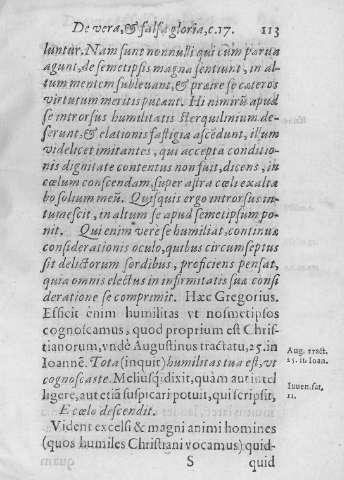 De vera, & falsa gloria, c. 17. 113
luntur. Nam sunt nonnulli qui cum parua
agunt, de semetipsis magna sentiunt, in al-
tum mentem subleuant, & præire se cæteros
virtutum meritis putant. Hi nimirũ apud
se introrsus humilitatis sterquilinium de-
serunt, & elationis fastigia ascẽdunt, illum
videlicet imitantes, qui accepta conditio-
nis dignitate contentus non fuit, dicens, in
cœlum conscendam, super astra cœli exalta
bo solium meũ. Quisquis ergo introrsus in-
tumescit, in altum se apud semetipsum po-
nit. Qui enim vere se humiliat, continuæ
considerationis oculo, quibus circumseptus
sit delictorum sordibus, proficiens pensat,
quia omnis electus in infirmitatis sua consi
deratione se comprimit. Hæc Gregorius.
Efficit enim humilitas vt nosmetipsos
cognoscamus, quod proprium est Chris-
tianorum, vndè Augustinus tractatu, 25. in
Ioannẽ. Tota (inquit) humilitas tua est, vt
cognoscas te. Meliusq; dixit, quàm aut intel
ligere, aut etiã suspicari potuit, qui scripsit,
E cœlo descendit.
Vident excelsi & magni animi homines
(quos humiles Christiani vocamus) quid-
S quid
Aug. tract.
25. in Ioan.
Iuuen. sat.
11.